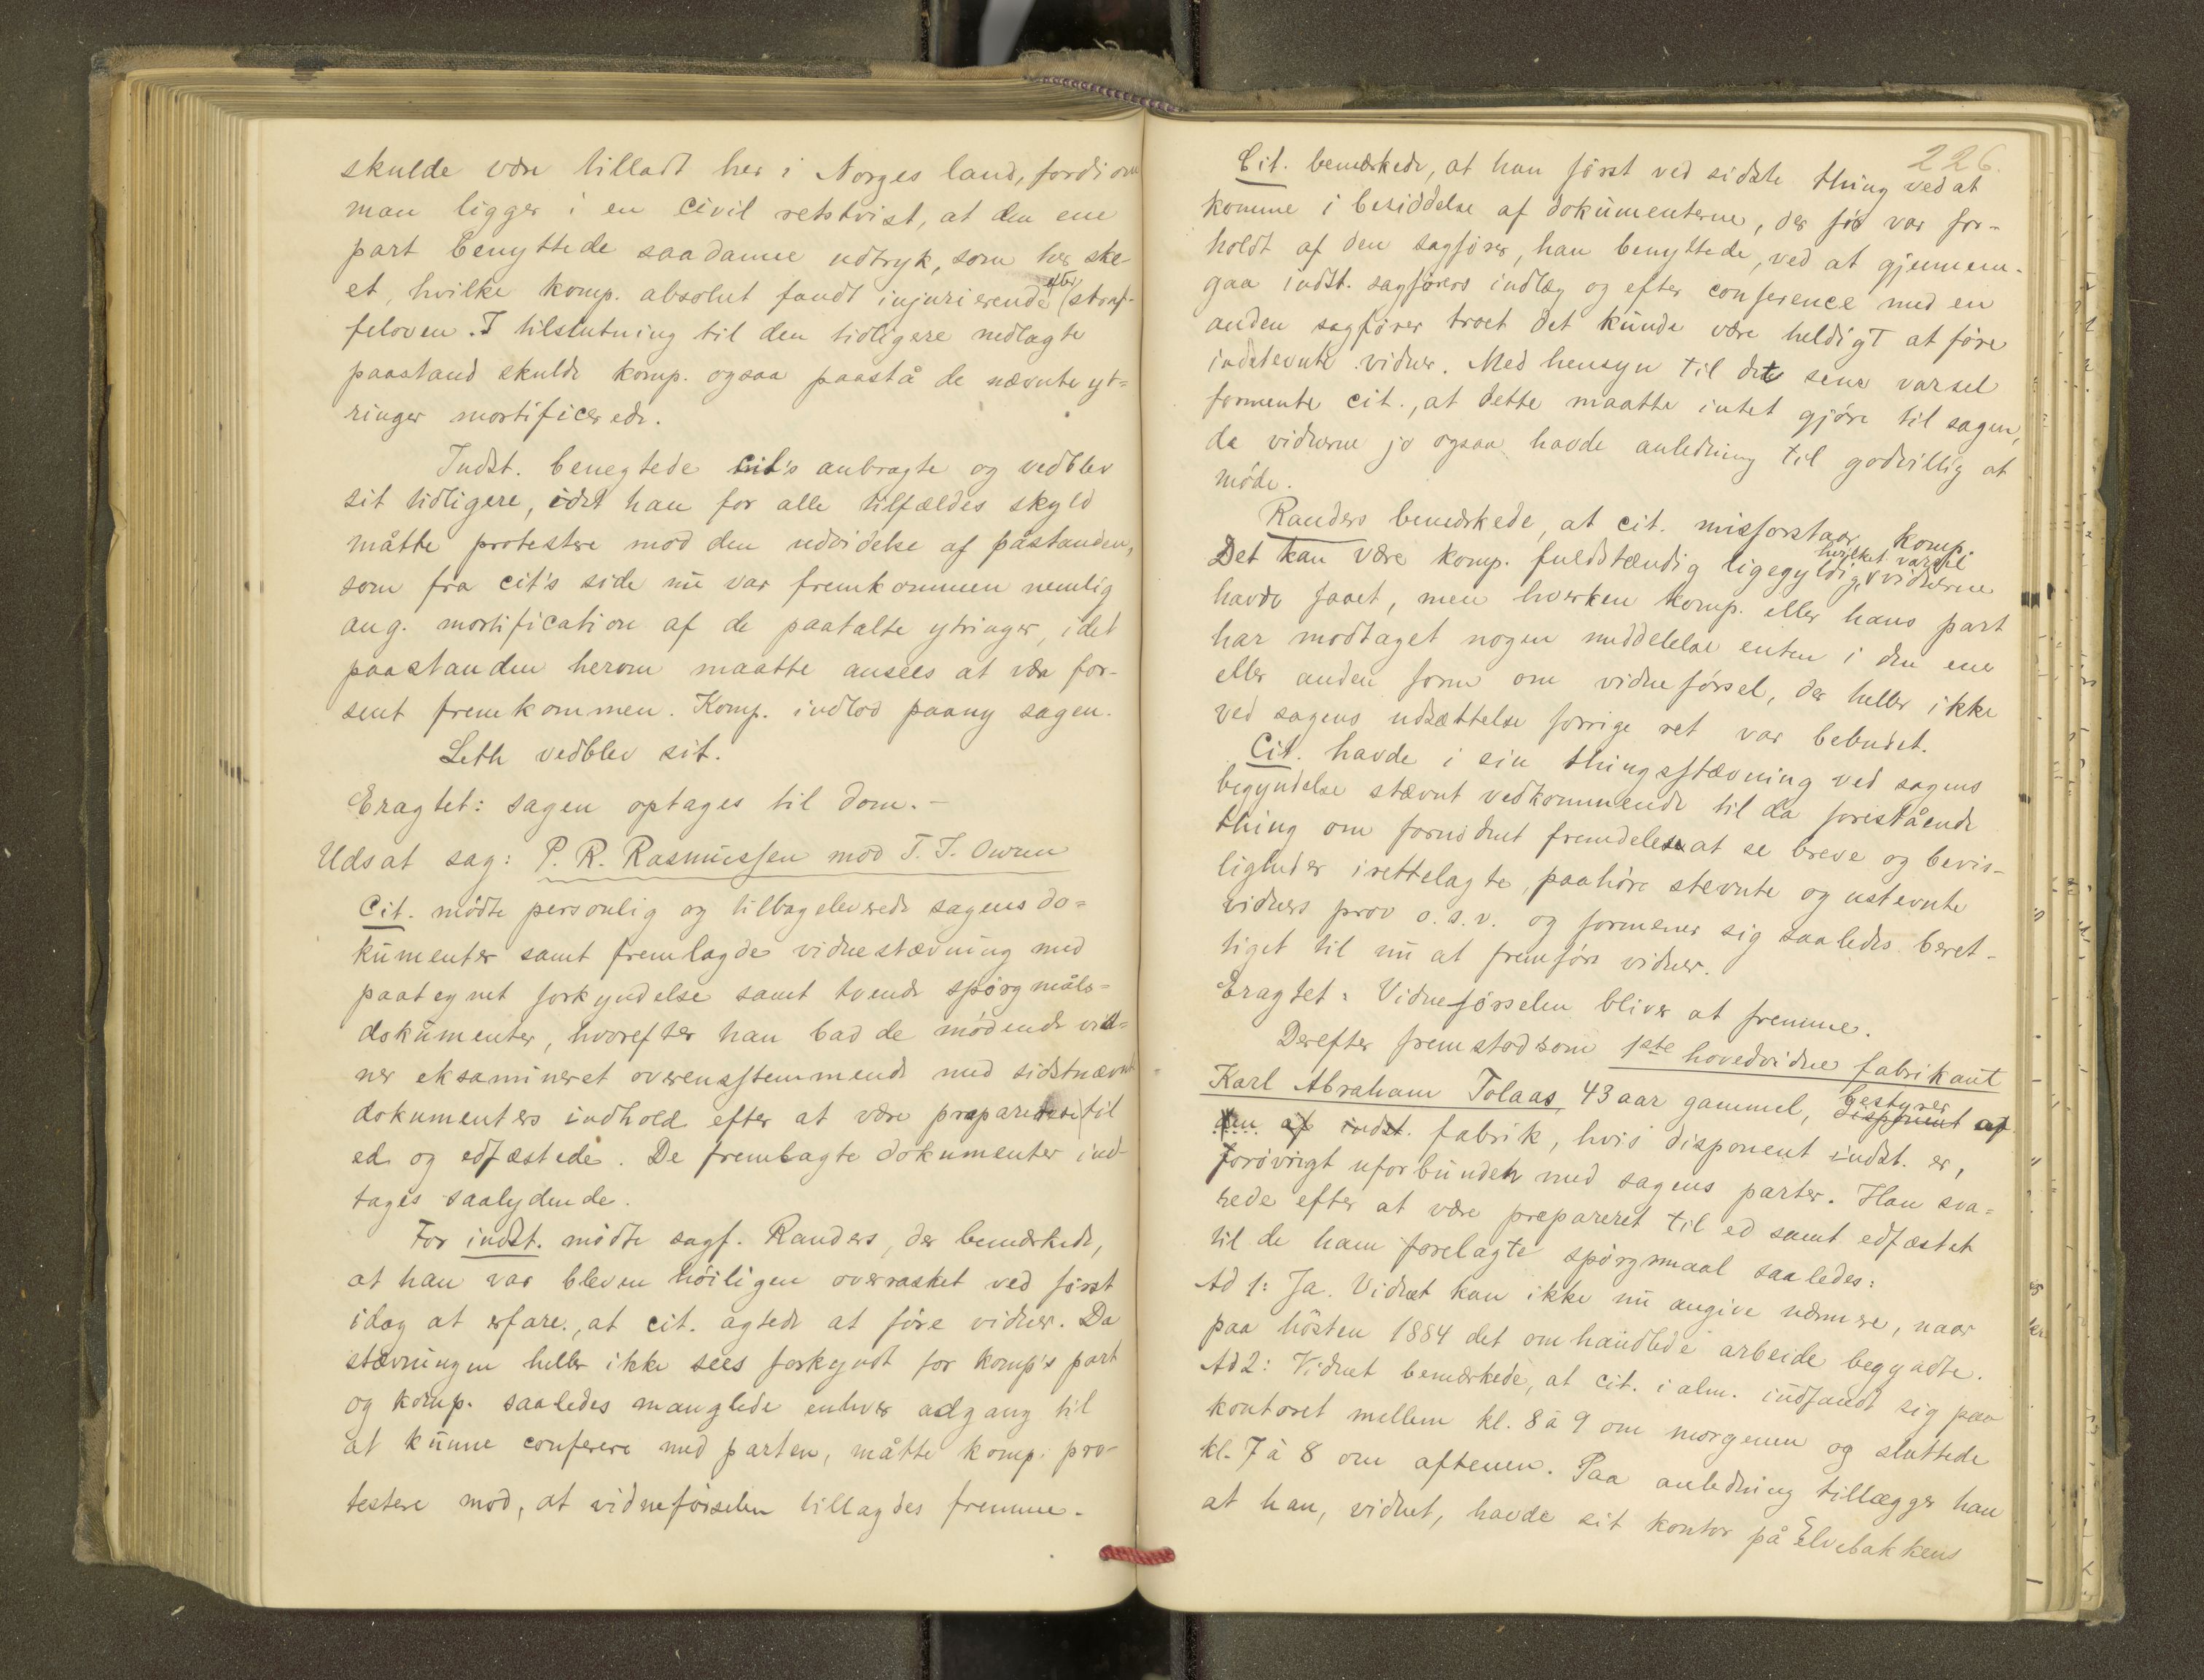 skulde være tilladt her i Norges land, fordi om
man ligger i en civil retstvist, at den ene
part benyttede saadanne udtryk, som her ske-
et, hvilke komp. absolut fandt injurierende efter straf-
feloven. I tilslutning til den tidligere nedlagte
paastand skulde komp. ogsaa paastå de nævnte yt-
ringer mortificerede.
Indst. benegtede cit's anbragte og vedblev
sit tidligere, idet han for alle tilfældes skyld
måtte protestere mod den udvidelse af påstanden,
som fra cit's side nu var fremkommen nemlig
ang. mortification af de paatalte ytringer, idet
paastanden herom maatte ansees at være for-
sent fremkommen. Komp. indlod paany sagen.
Leth vedblev sit.
Eragtet: sagen optages til dom. -
Udsat sag: P. R. Rasmussen mod T. J. Owren
Cit. mødte personlig og tilbageleverede sagens do-
kumenter samt fremlagde vidnestævning med
paategnet forkyndelse samt tvende spörgmåls-
dokumenter, hvorefter han bad de mødende vid-
ner eksamineret overensstemmende med sidstnævnte
dokumenters indhold efter at være præparerede til
ed og edfæstede. De fremlagte dokumenter ind-
tages saalydende.
For indst. mødte sagf. Randers, der bemærkede,
at han var bleven høiligen overrasket ved först
idag at erfare, at cit. agtede at føre vidner. Da
stævningen heller ikke sees forkyndt for komp's part
og komp. saaledes manglede enhver adgang til
at kunne conferere med parten, måtte komp. pro-
testere mod, at vidneförselen tillagdes fremme.
226.
Cit. bemærkede, at han først ved sidste thing ved at
komme i besiddelse af dokumenterne, der før var for-
holdt af den sagfører, han benyttede, ved at gjennem-
gaa indst. sagførers indlæg og efter conference med en
anden sagfører troet det kunde være heldigt at føre
indstevnte vidner. Med hensyn til det sene varsel
formente cit., at dette maatte intet gjøre til sagen,
da vidnerne jo ogsaa havde anledning til godvillig at
møde.
Randers bemærkede, at cit. misforstaar komp.
Det kan være komp. fuldstændig ligegyldig, hvilket varsel vidnerne
havde faaet, men hverken komp. eller hans part
har modtaget nogen meddelelse enten i den ene
eller anden form om vidneførsel, der heller ikke
ved sagens udsættelse forrige ret var bebudet.
Cit. havde i sin thingsstævning ved sagens
begyndelse stævnt vedkommende til da forestående
thing om fornødent fremdeles at se breve og bevis-
ligheder irettelagte, paahöre stevnte og ustevnte
vidners prov o. s. v. og formener sig saaledes beret-
tiget til nu at fremføre vidner.
Eragtet: Vidneførselen bliver at fremme.
Derefter fremstod som 1ste hovedvidne fabrikant
Karl Abraham Tolaas, 43 aar gammel, disponent bestyrer af
den af indst. fabrik, hvis disponent indst. er,
forøvrigt uforbunden med sagens parter. Han sva-
rede efter at være præpareret til ed samt edfæstet
til de ham forelagte spørgsmaal saaledes:
Ad 1: Ja. Vidnet kan ikke nu angive nærmere, naar
paa hösten 1884 det omhandlede arbeide begyndte.
Ad 2: Vidnet bemærkede, at cit. i alm. indfandt sig paa
kontoret mellem kl. 8 à 9 om morgenen og sluttede
kl. 7 à 8 om aftenen. Paa anledning tillægger han
at han, vidnet, havde sit kontor på Elvebakkens